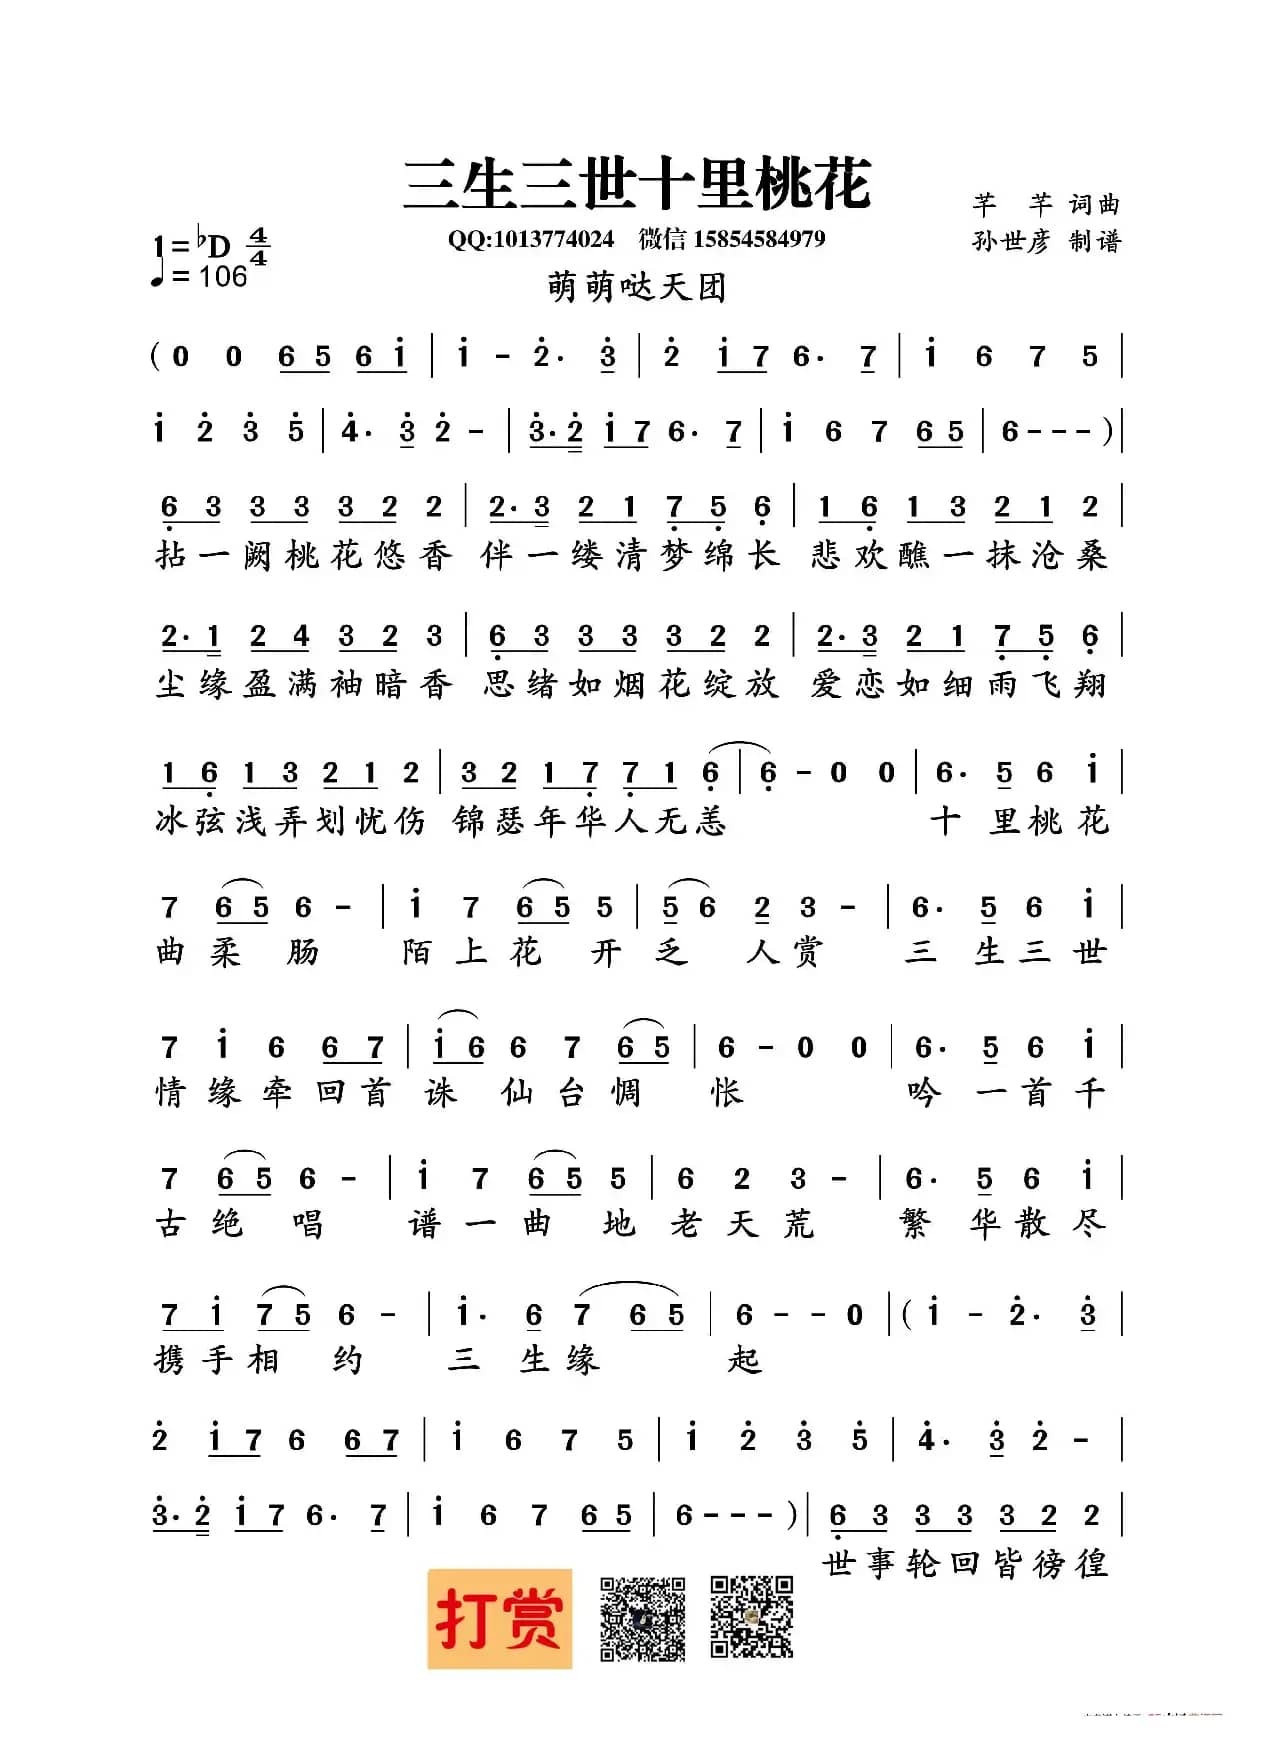 三生三世十里桃花
芊 芊 词曲
1=♭D 4/4
QQ:1013774024 微信 15854584979
孙世彦 制谱
♩= 106
萌萌哒天团
(0 0 6 5 6 i̇ | i̇ - 2̇· 3̇ | 2̇ i̇ 7 6· 7 | i̇ 6 7 5 |
i̇ 2̇ 3̇ 5̇ | 4̇· 3̇ 2̇ - | 3̇· 2̇ i̇ 7 6· 7 | i̇ 6 7 6 5 | 6 - - - )|
6̣ 3 3 3 3 2 2 | 2· 3 2 1 7̣ 5̣ 6̣ | 1 6̣ 1 3 2 1 2 |
拈一阙桃花悠香 伴一缕清梦绵长 悲欢醮一抹沧桑
2· 1 2 4 3 2 3 | 6̣ 3 3 3 3 2 2 | 2· 3 2 1 7̣ 5̣ 6̣ |
尘缘盈满袖暗香 思绪如烟花绽放 爱恋如细雨飞翔
1 6̣ 1 3 2 1 2 | 3 2 1 7̣ 7̣ 1 6̣ | 6̣ - 0 0 | 6· 5 6 i̇ |
冰弦浅弄划忧伤 锦瑟年华人无恙 十 里桃花
7 6 5 6 - | i̇ 7 6 5 5 | 5 6 2 3 - | 6· 5 6 i̇ |
曲柔肠 陌上花开乏人赏 三生三世
7 i̇ 6 6 7 | i̇ 6 6 7 6 5 | 6 - 0 0 | 6· 5 6 i̇ |
情缘牵回首 诛仙台惆怅 吟一首千
7 6 5 6 - | i̇ 7 6 5 5 | 6 2 3 - | 6· 5 6 i̇ |
古绝唱 谱一曲地老天荒 繁华散尽
7 i̇ 7 5 6 - | i̇· 6 7 6 5 | 6 - - 0 |( i̇ - 2̇· 3̇ |
携手相约 三生缘起
2̇ i̇ 7 6 6 7 | i̇ 6 7 5 | i̇ 2̇ 3̇ 5̇ | 4̇· 3̇ 2̇ - |
3̇· 2̇ i̇ 7 6· 7 | i̇ 6 7 6 5 | 6 - - - )| 6̣ 3 3 3 3 2 2 |
世事轮回皆徬徨
打赏